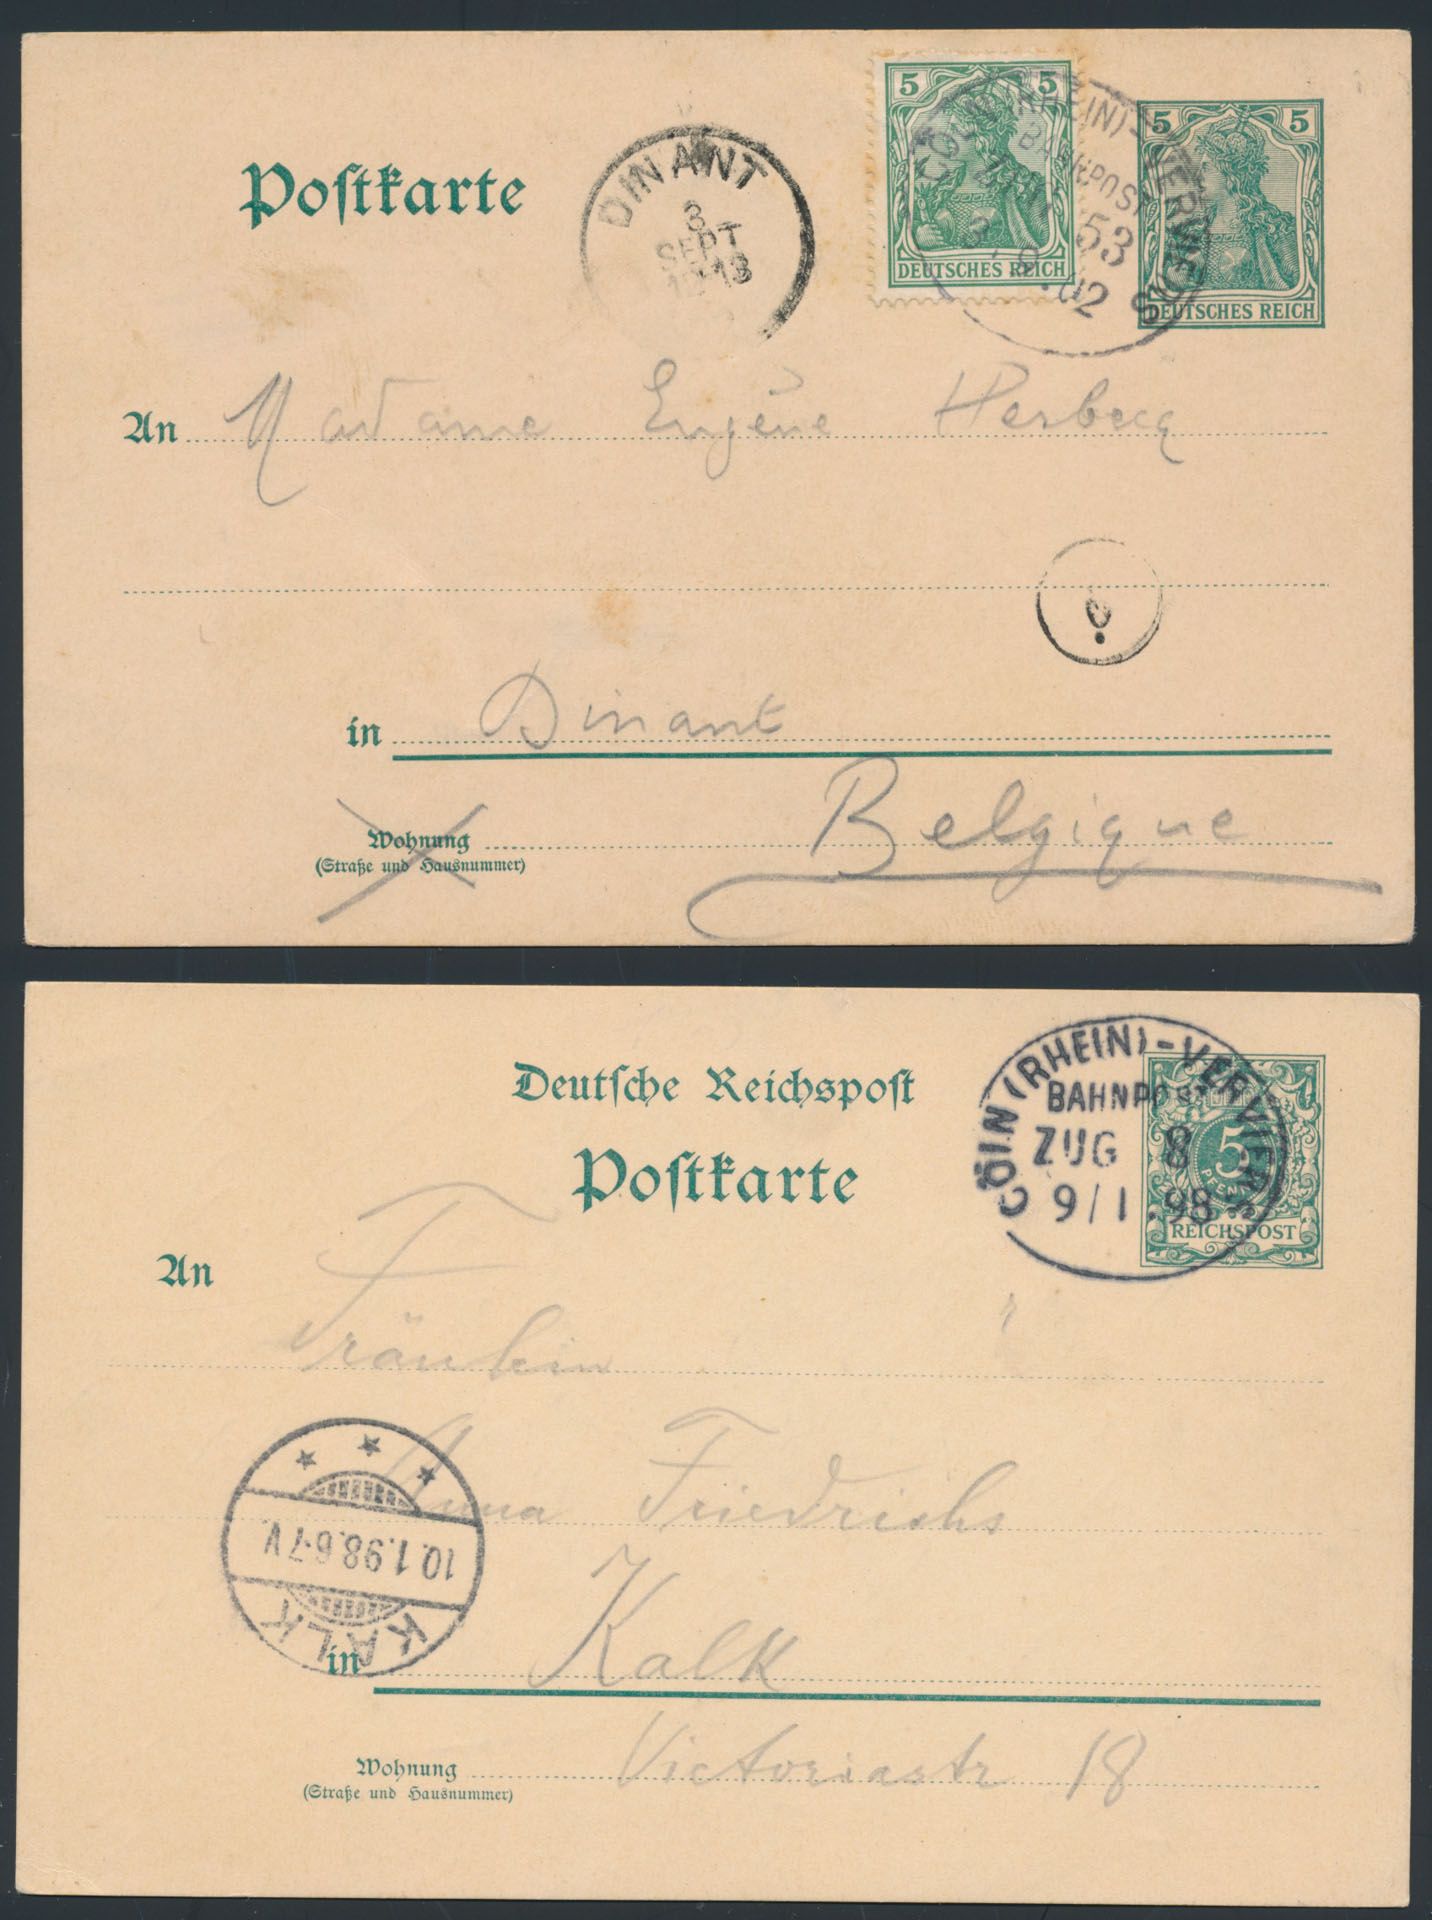 Postkarte
DINANT
3
SEPT
5 5
DEUTSCHES REICH
CÖLN (RHEIN)-VERVIERS
BAHNPOST
ZUG 53
3. 9. 02
5 5
DEUTSCHES REICH
An Madame Eugène Herbecq
in Dinant
Belgique
Wohnung
(Straße und Hausnummer)
Deutsche Reichspost
Postkarte
CÖLN (RHEIN)-VERVIERS
BAHNPOST
ZUG 8
9/1.98
5
PFENNIG
REICHSPOST
An Fräulein
Anna Friedrichs
10.1.98.6-7V.
KALK
in Kalk
Wohnung Victoriastr 18
(Straße und Hausnummer)